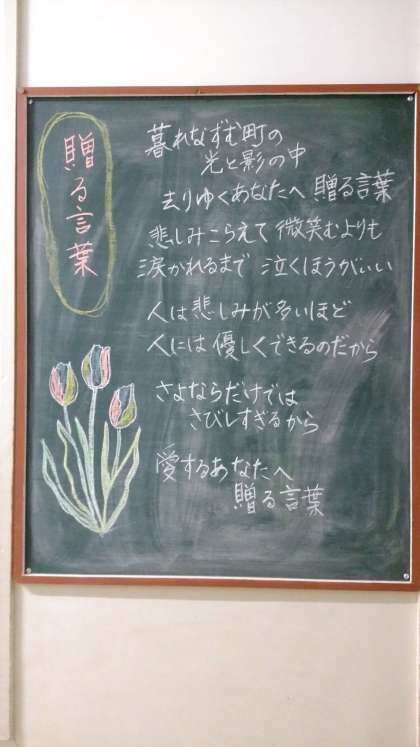 贈る言葉
暮れなずむ町の
光と影の中
去りゆくあなたへ 贈る言葉
悲しみこらえて 微笑むよりも
涙かれるまで 泣くほうがいい
人は悲しみが多いほど
人には優しくできるのだから
さよならだけでは
さびしすぎるから
愛するあなたへ
贈る言葉